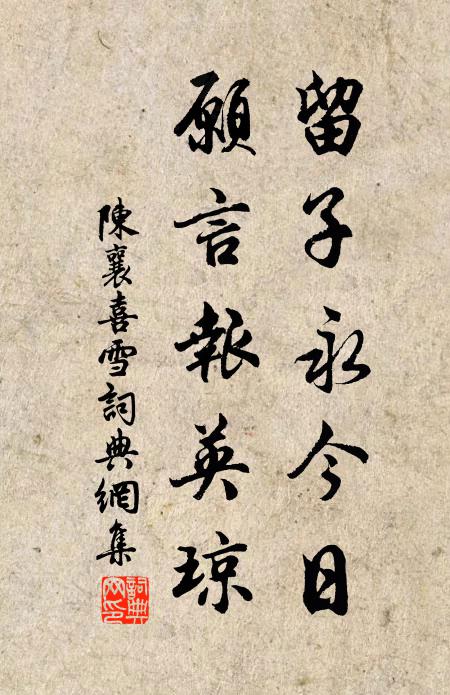 留子永今日
願言報英瓊
陳襄喜雪詞典網集
詞典网印